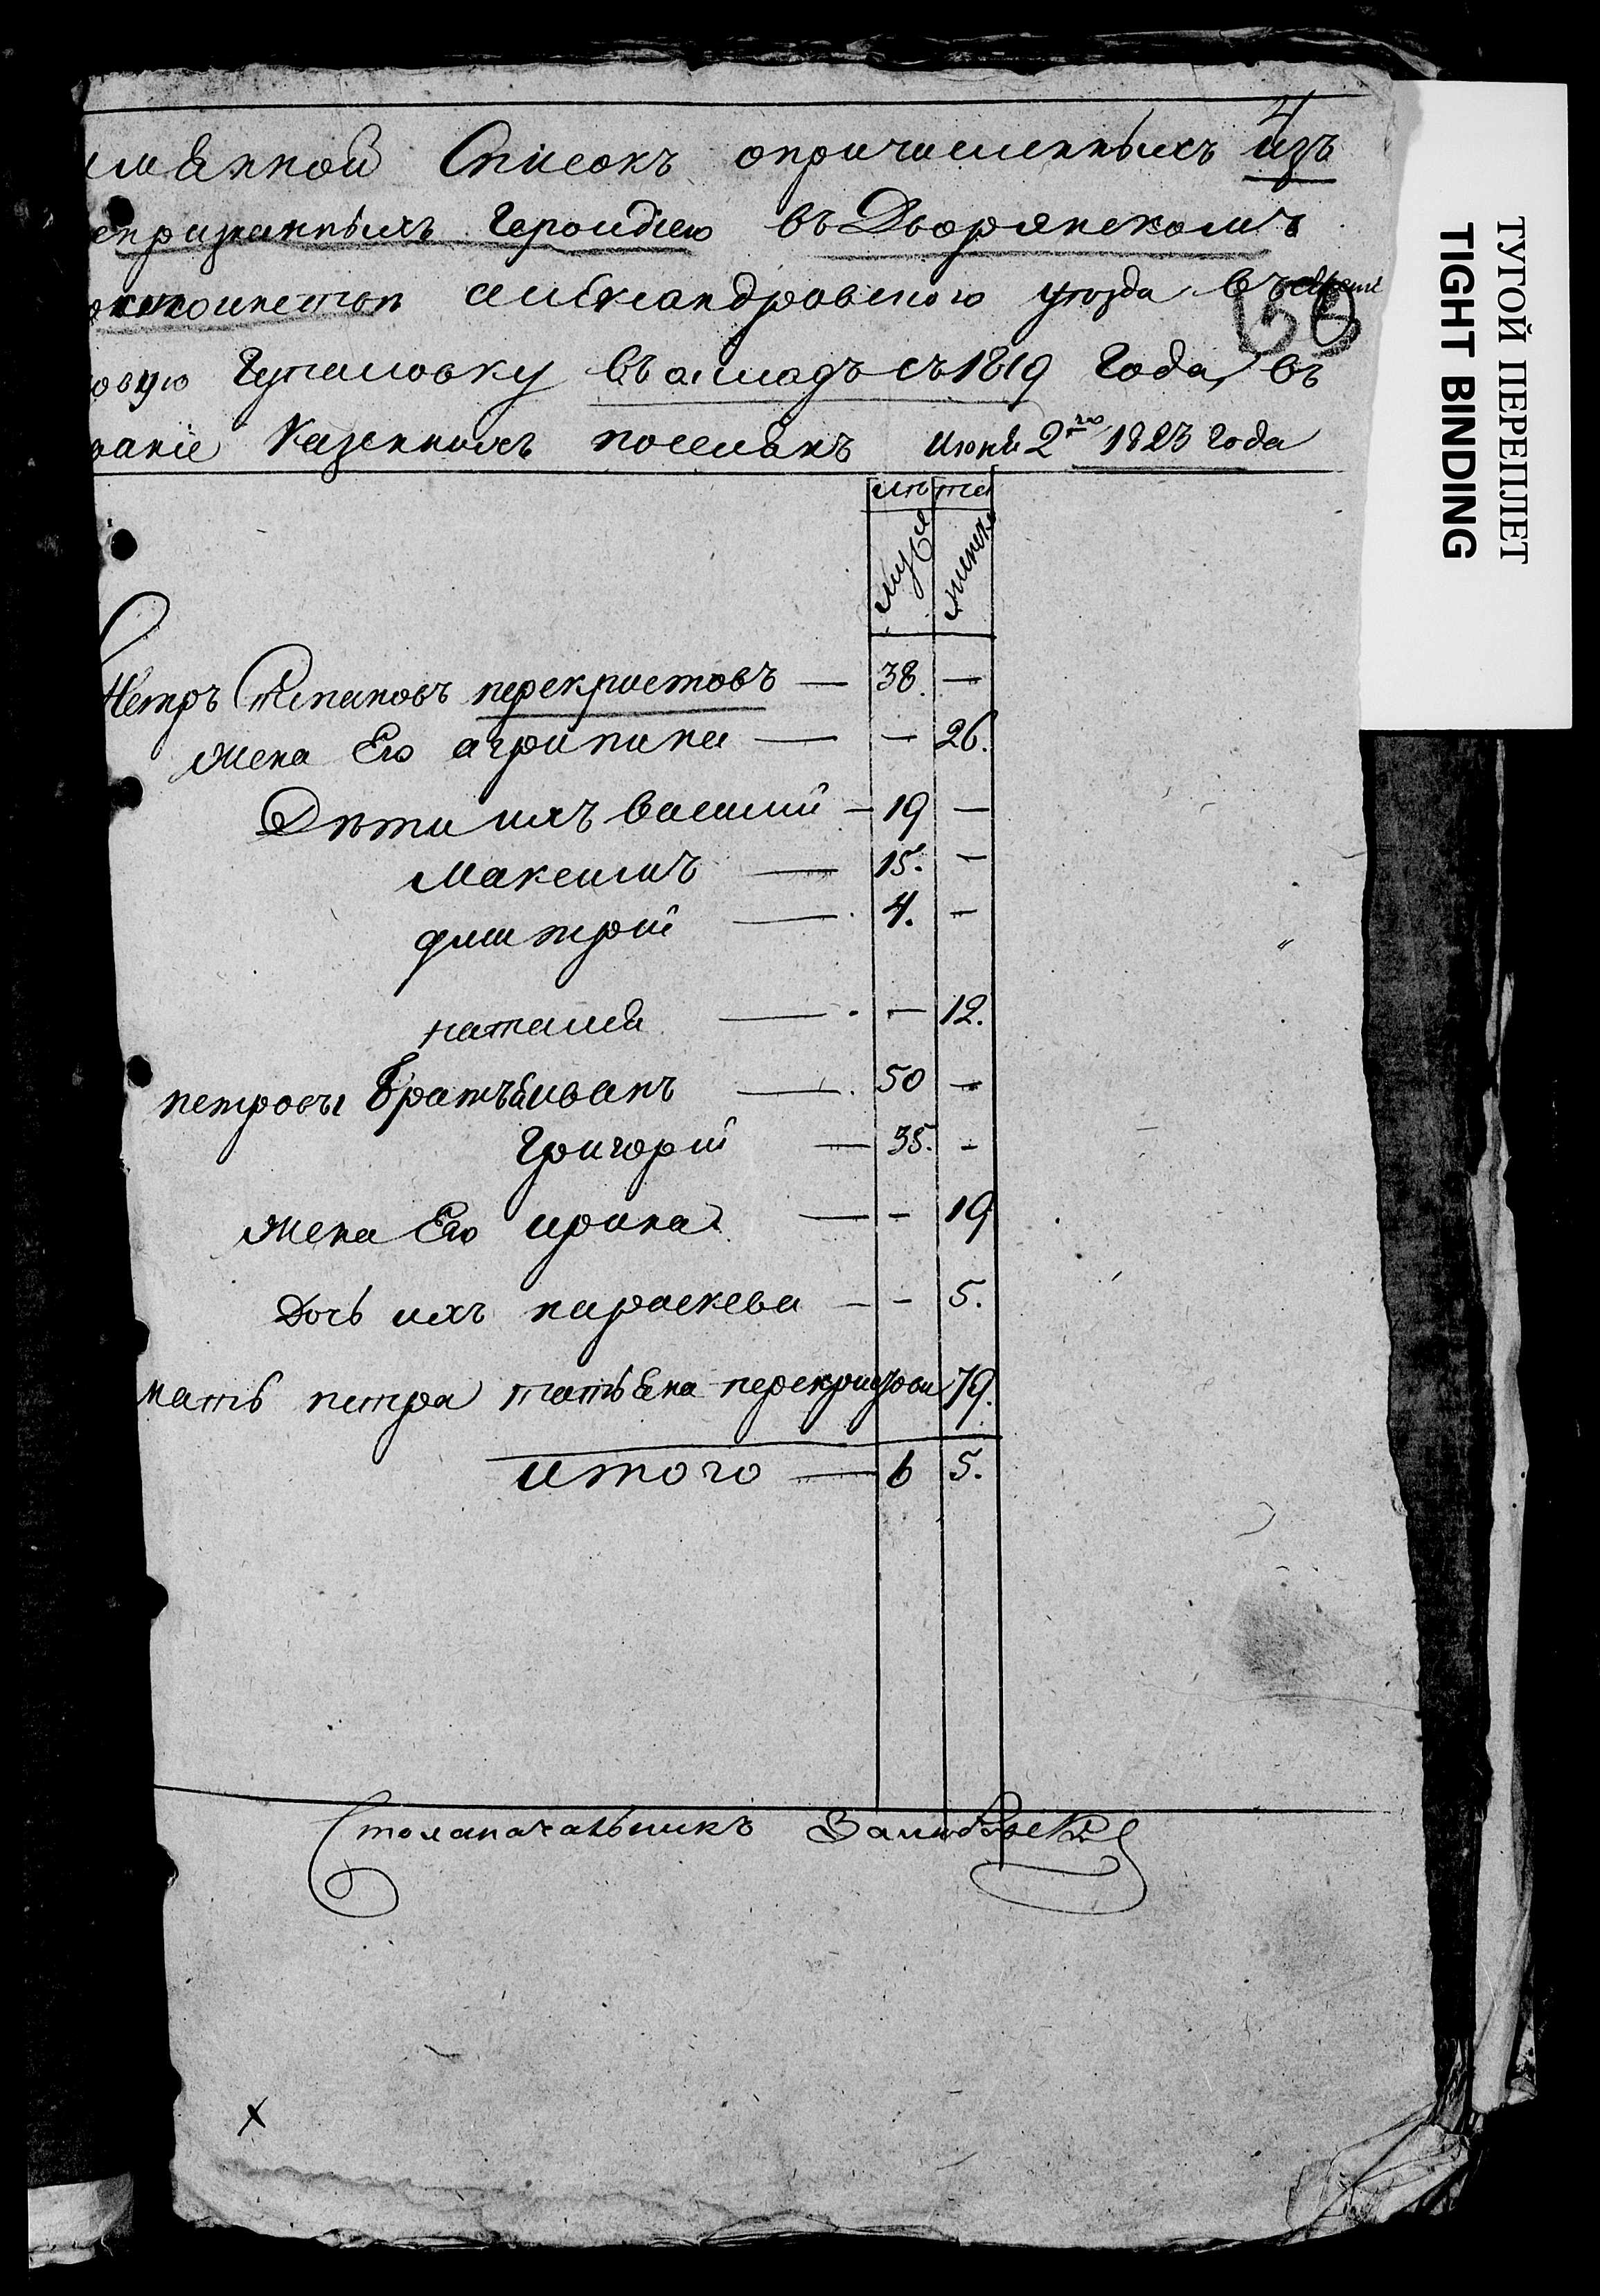 4
имянной Списокъ опричисленныхъ изъ
епризнанныхъ Герольдіею въ Дворянскомъ
остоинствѣ Александровского уѣзда въ
50
овую Гупаловку въ акладъ съ 1819 Года, въ
вание Казенныхъ поселянъ июня 2го 1823 года
лѣта
муже женск
Петръ Степановъ перекристовъ — 38. —
Жена Его агрипина — — 26.
Дѣти ихъ василий — 19 —
Максимъ — 15. —
дмитрий — 4. —
наталия — — 12.
петровы братья иванъ — 50 —
Григорий — 35. —
Жена Его ирина — — 19
Дочь ихъ параскева — — 5.
мать петра татьяна перекристова 79.
итого — 6 5.
Столаначальникъ
ТУГОЙ ПЕРЕПЛЕТ
TIGHT BINDING